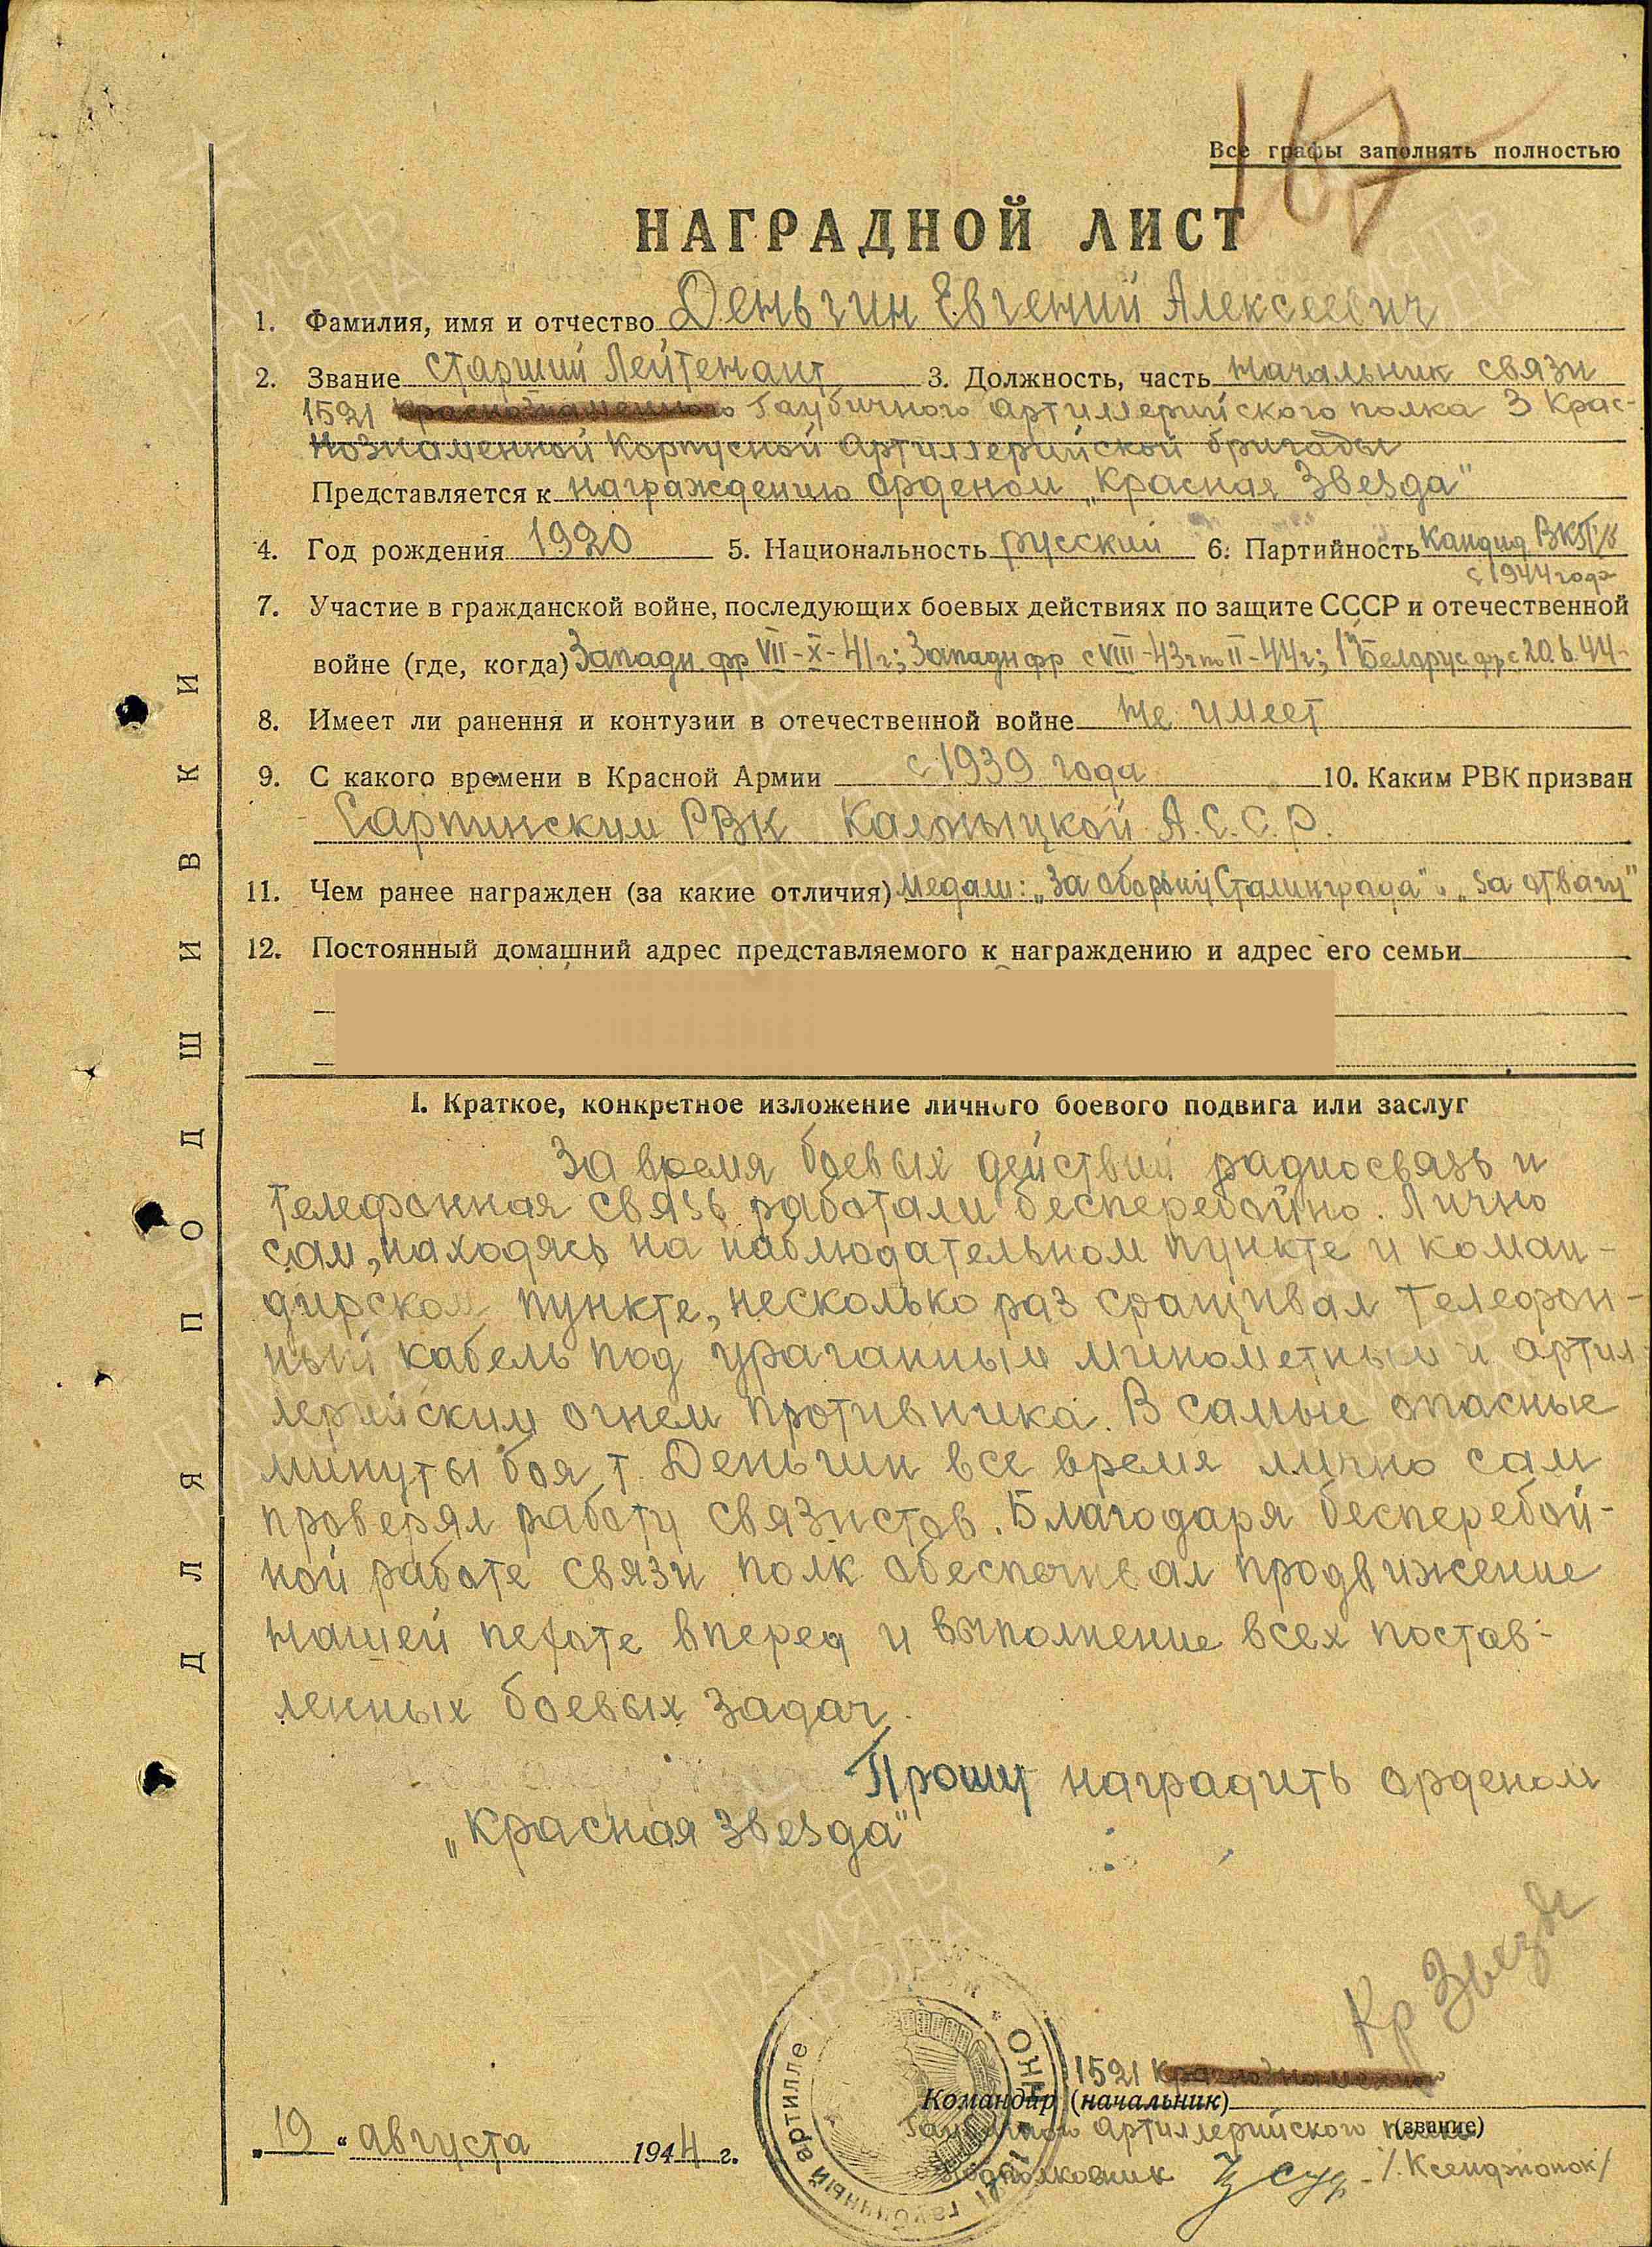 167
Все графы заполнять полностью
НАГРАДНОЙ ЛИСТ
1. Фамилия, имя и отчество Деньгин Евгений Алексеевич
2. Звание Старший Лейтенант 3. Должность, часть Начальник связи
1521 Краснознаменного Гаубичного Артиллерийского полка 3 Крас-
нознаменной Корпусной Артиллерийской бригады
Представляется к награждению орденом „Красная Звезда"
4. Год рождения 1920 5. Национальность русский 6. Партийность Кандид ВКП/б
с 1944 года
7. Участие в гражданской войне, последующих боевых действиях по защите СССР и отечественной
войне (где, когда) Западн. фр VII-X-41г; Западн фр с VIII-43г по II-44г; 1й Белорус. фр с 20.6.44
8. Имеет ли ранения и контузии в отечественной войне Не имеет
9. С какого времени в Красной Армии с 1939 года 10. Каким РВК призван
Сарпинским РВК Калмыцкой А.С.С.Р.
11. Чем ранее награжден (за какие отличия) Медали: „За оборону Сталинграда" и „За отвагу"
12. Постоянный домашний адрес представляемого к награждению и адрес его семьи
I. Краткое, конкретное изложение личного боевого подвига или заслуг
За время боевых действий радиосвязь и
телефонная связь работали бесперебойно. Лично
сам, находясь на наблюдательном пункте и коман-
дирском пункте, несколько раз сращивал телефон-
ный кабель под ураганным минометным и артил-
лерийским огнем противника. В самые опасные
минуты боя т. Деньгин все время лично сам
проверял работу связистов. Благодаря бесперебой-
ной работе связи полк обеспечивал продвижение
нашей пехоте вперед и выполнение всех постав-
ленных боевых задач.
Прошу наградить орденом
„Красная Звезда"
Кр Звезда
1521 Краснознаменного
Командир (начальник)
Гаубичного Артиллерийского полка (звание)
„19" августа 1944 г.
Подполковник /Ксендзпопок/
НКО гаубичный артилле
ДЛЯ ПОДШИВКИ
ПАМЯТЬ НАРОДА